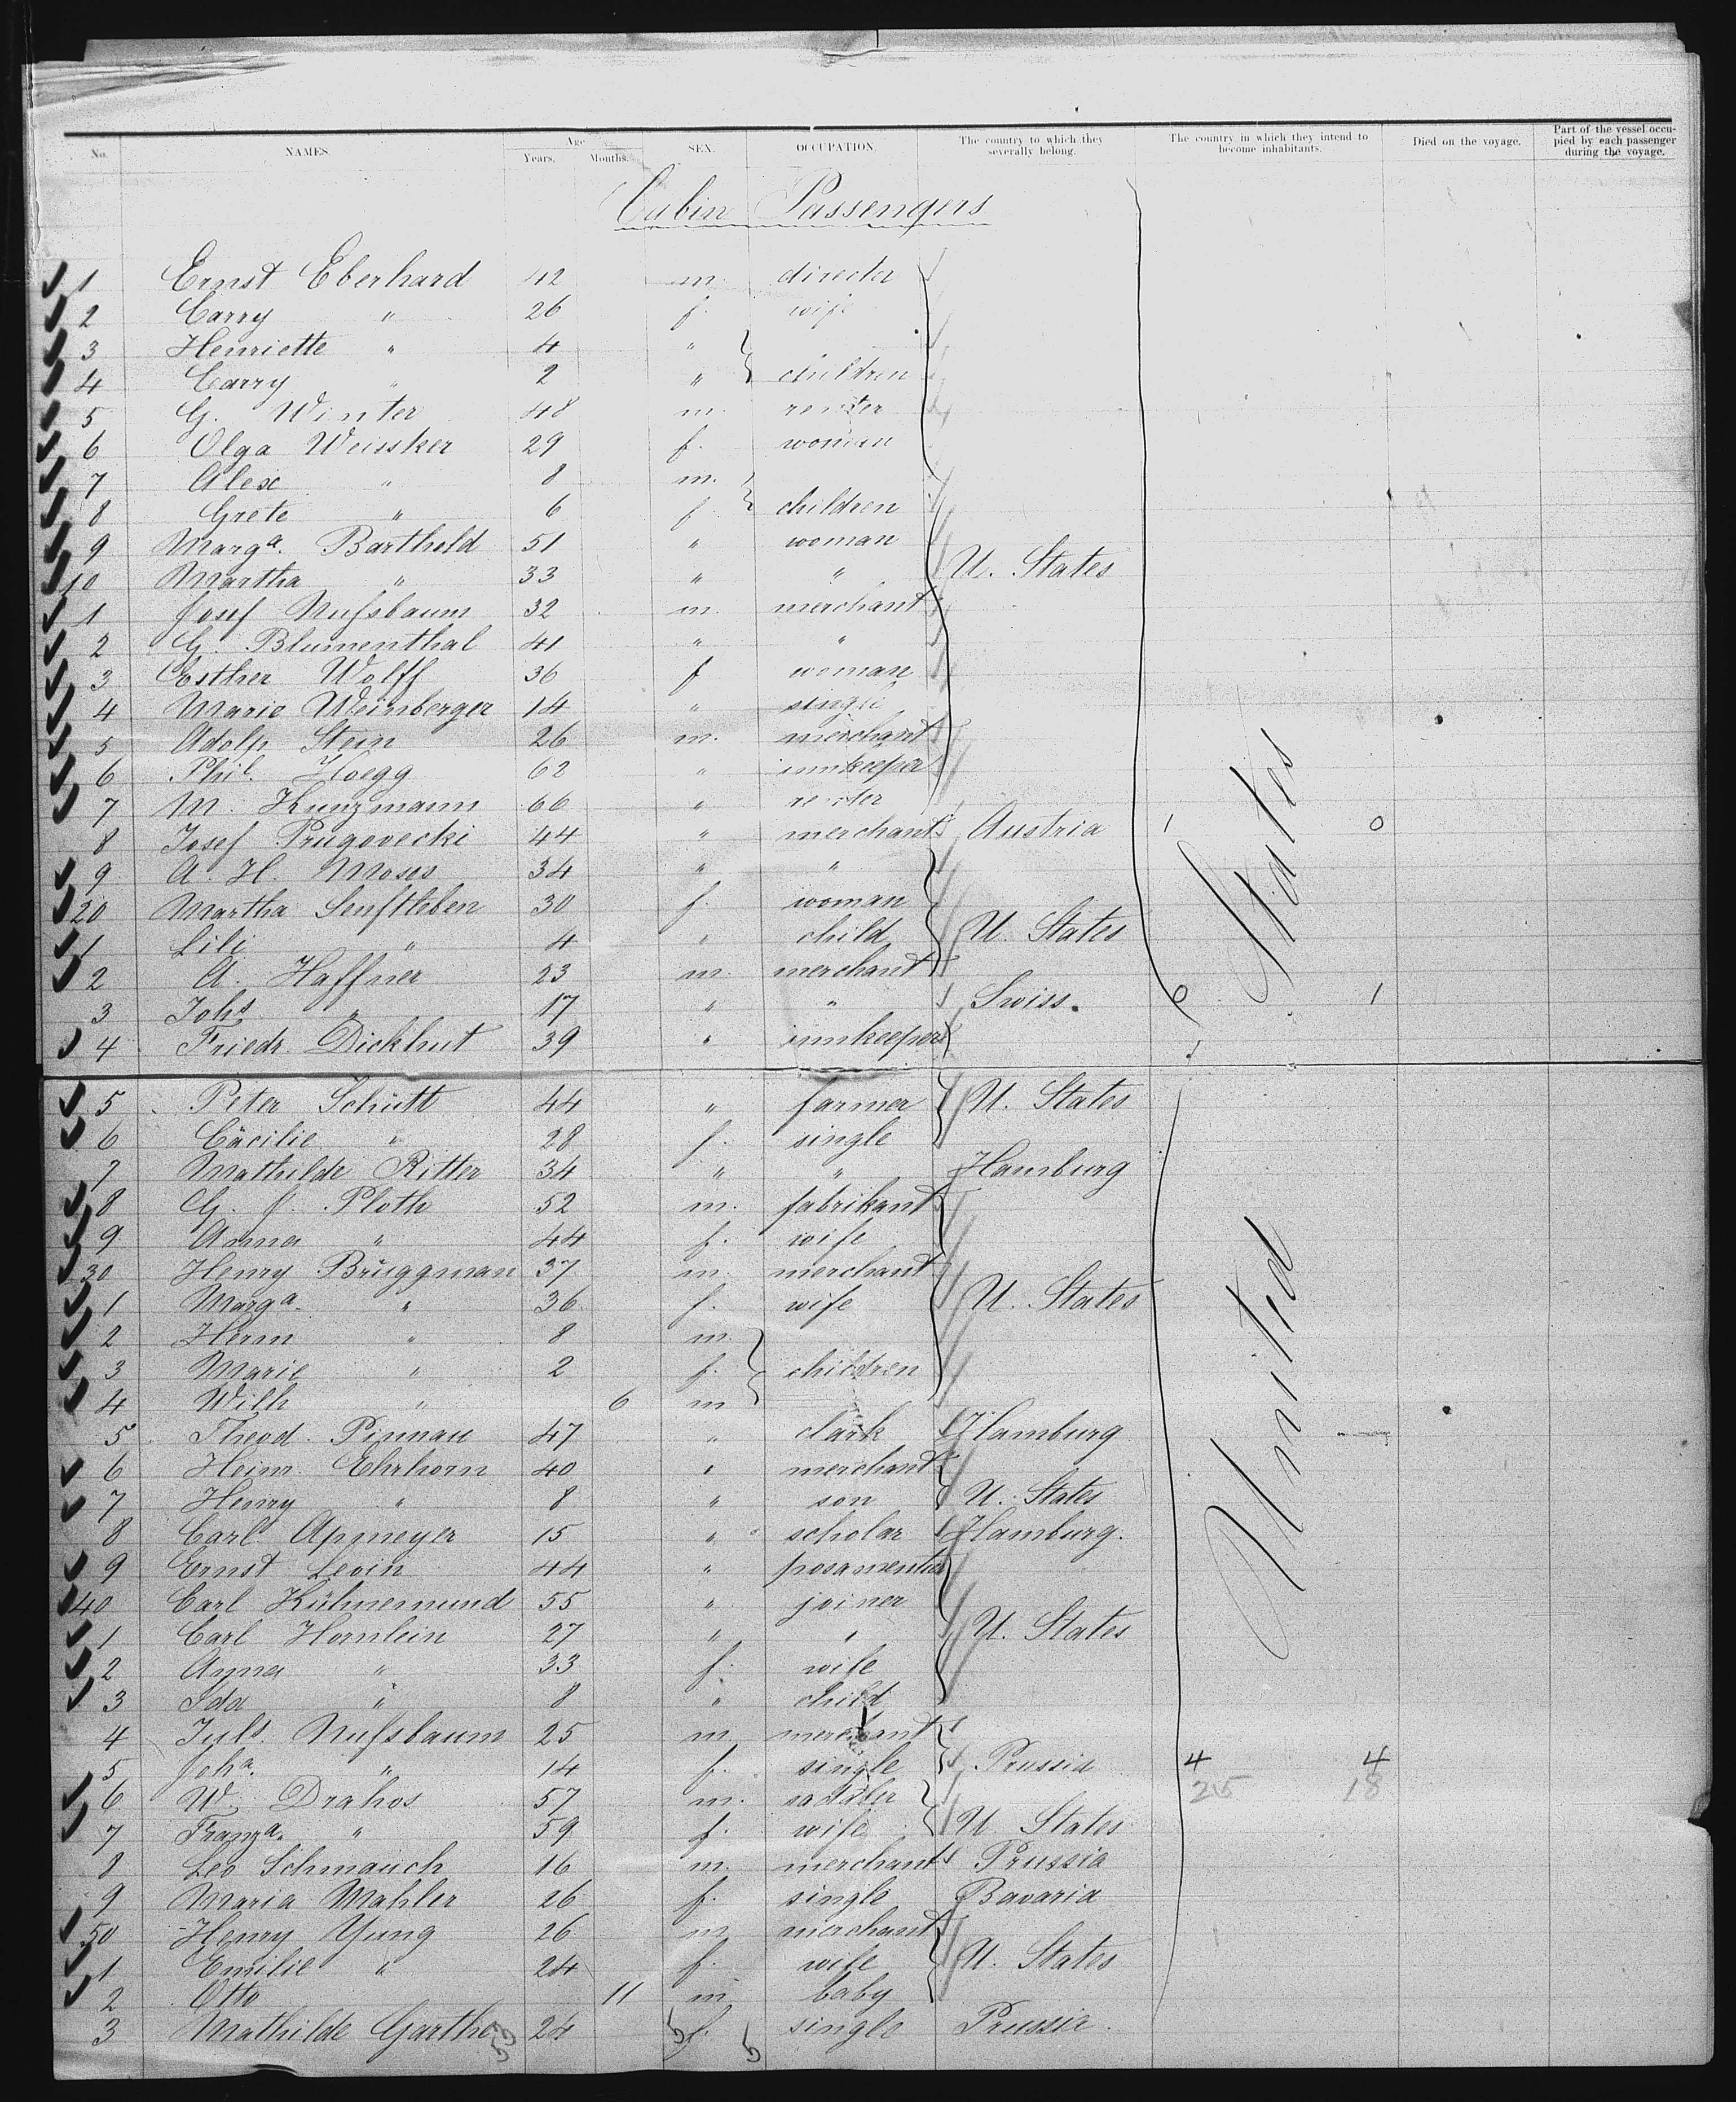 No. NAMES. Age Years. Months. SEX. OCCUPATION. The country to which they severally belong. The country in which they intend to become inhabitants. Died on the voyage. Part of the vessel occupied by each passenger during the voyage.
Cabin Passengers
1 Ernst Eberhard 42 m. director
2 Carry " 26 f. wife
3 Henriette " 4 "
4 Carry " 2 " children
5 G. Winter 48 m. renter
6 Olga Weissker 29 f. woman
7 Alex " 8 m.
8 Grete " 6 f children
9 Marga. Barthold 51 " woman
10 Martha " 33 " " U. States
1 Josef Nufsbaum 32 m. merchant
2 G. Blumenthal 41 " "
3 Esther Wolff 36 f woman
4 Marie Weinberger 14 " single
5 Adolf Stein 26 m. merchant
6 Phil. Hoegg 62 " innkeeper
7 M. Kunzmann 66 " renter
8 Josef Prugovecki 44 " merchant Austria 1 0
9 A. H. Moses 34 " "
20 Martha Senftleben 30 f. woman
1 Lili " 4 " child U. States
2 A. Haffner 23 m. merchant
3 Johs " 17 " " Swiss. 0 1
4 Friedr. Dickhut 39 " innkeeper
5 Peter Schütt 44 " farmer U. States
6 Cäcilie " 28 f. single
7 Mathilde Ritter 34 " " Hamburg
8 G. J. Ploth 52 m. fabrikant
9 Anna " 44 f. wife
30 Henry Brüggman 37 m. merchant
1 Marga. " 36 f. wife U. States
2 Herm " 8 m.
3 Marie " 2 f. children
4 Wilh " 6 m
5 Theod. Pinnau 47 " clark Hamburg
6 Heinr. Ehrhorn 40 " merchant
7 Henry " 8 " son U. States
8 Carl Apmeyer 15 " scholar Hamburg.
9 Ernst Levin 44 " posamentier
40 Carl Kühnemund 55 " joiner
1 Carl Hornlein 27 " " U. States
2 Anna " 33 f. wife
3 Ida " 8 " child
4 Juls. Nufsbaum 25 m. merchant
5 Joha. " 14 f. single Prussia 4 4
6 W. Drahos 57 m. saddler 215 18
7 Franza. " 59 f. wife U. States
8 Leo Schmauch 16 m. merchant Prussia
9 Maria Mahler 26 f. single Bavaria
50 Henry Yung 26 m merchant
1 Emilie " 24 f. wife U. States
2 Otto 11 m baby
3 Mathilde Garthe 24 f. single Prussia.
United States